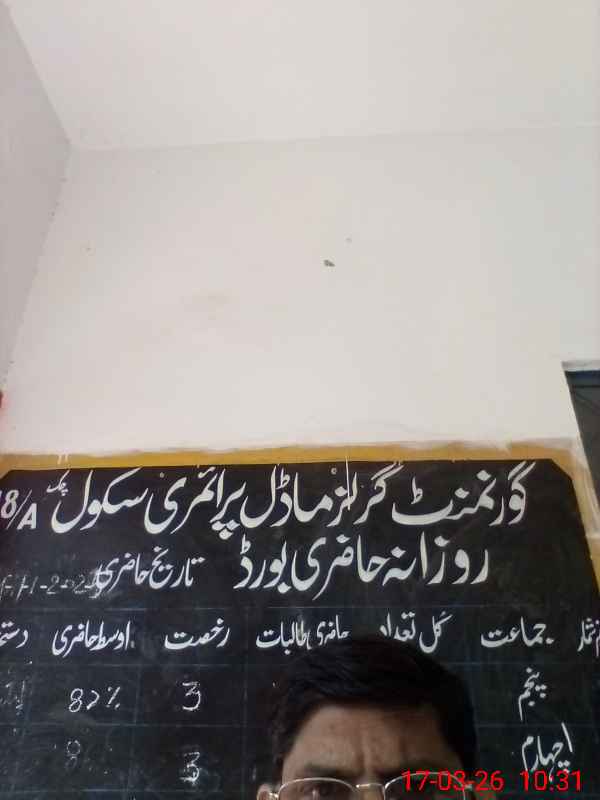 گورنمنٹ گرلز ماڈل پرائمری سکول چک 18/A
روزانہ حاضری بورڈ تاریخ حاضری
جماعت کل تعداد حاضری طالبات رخصت اوسط حاضری
پنجم 3 82%
چہارم 3 8
17-03-26 10:31